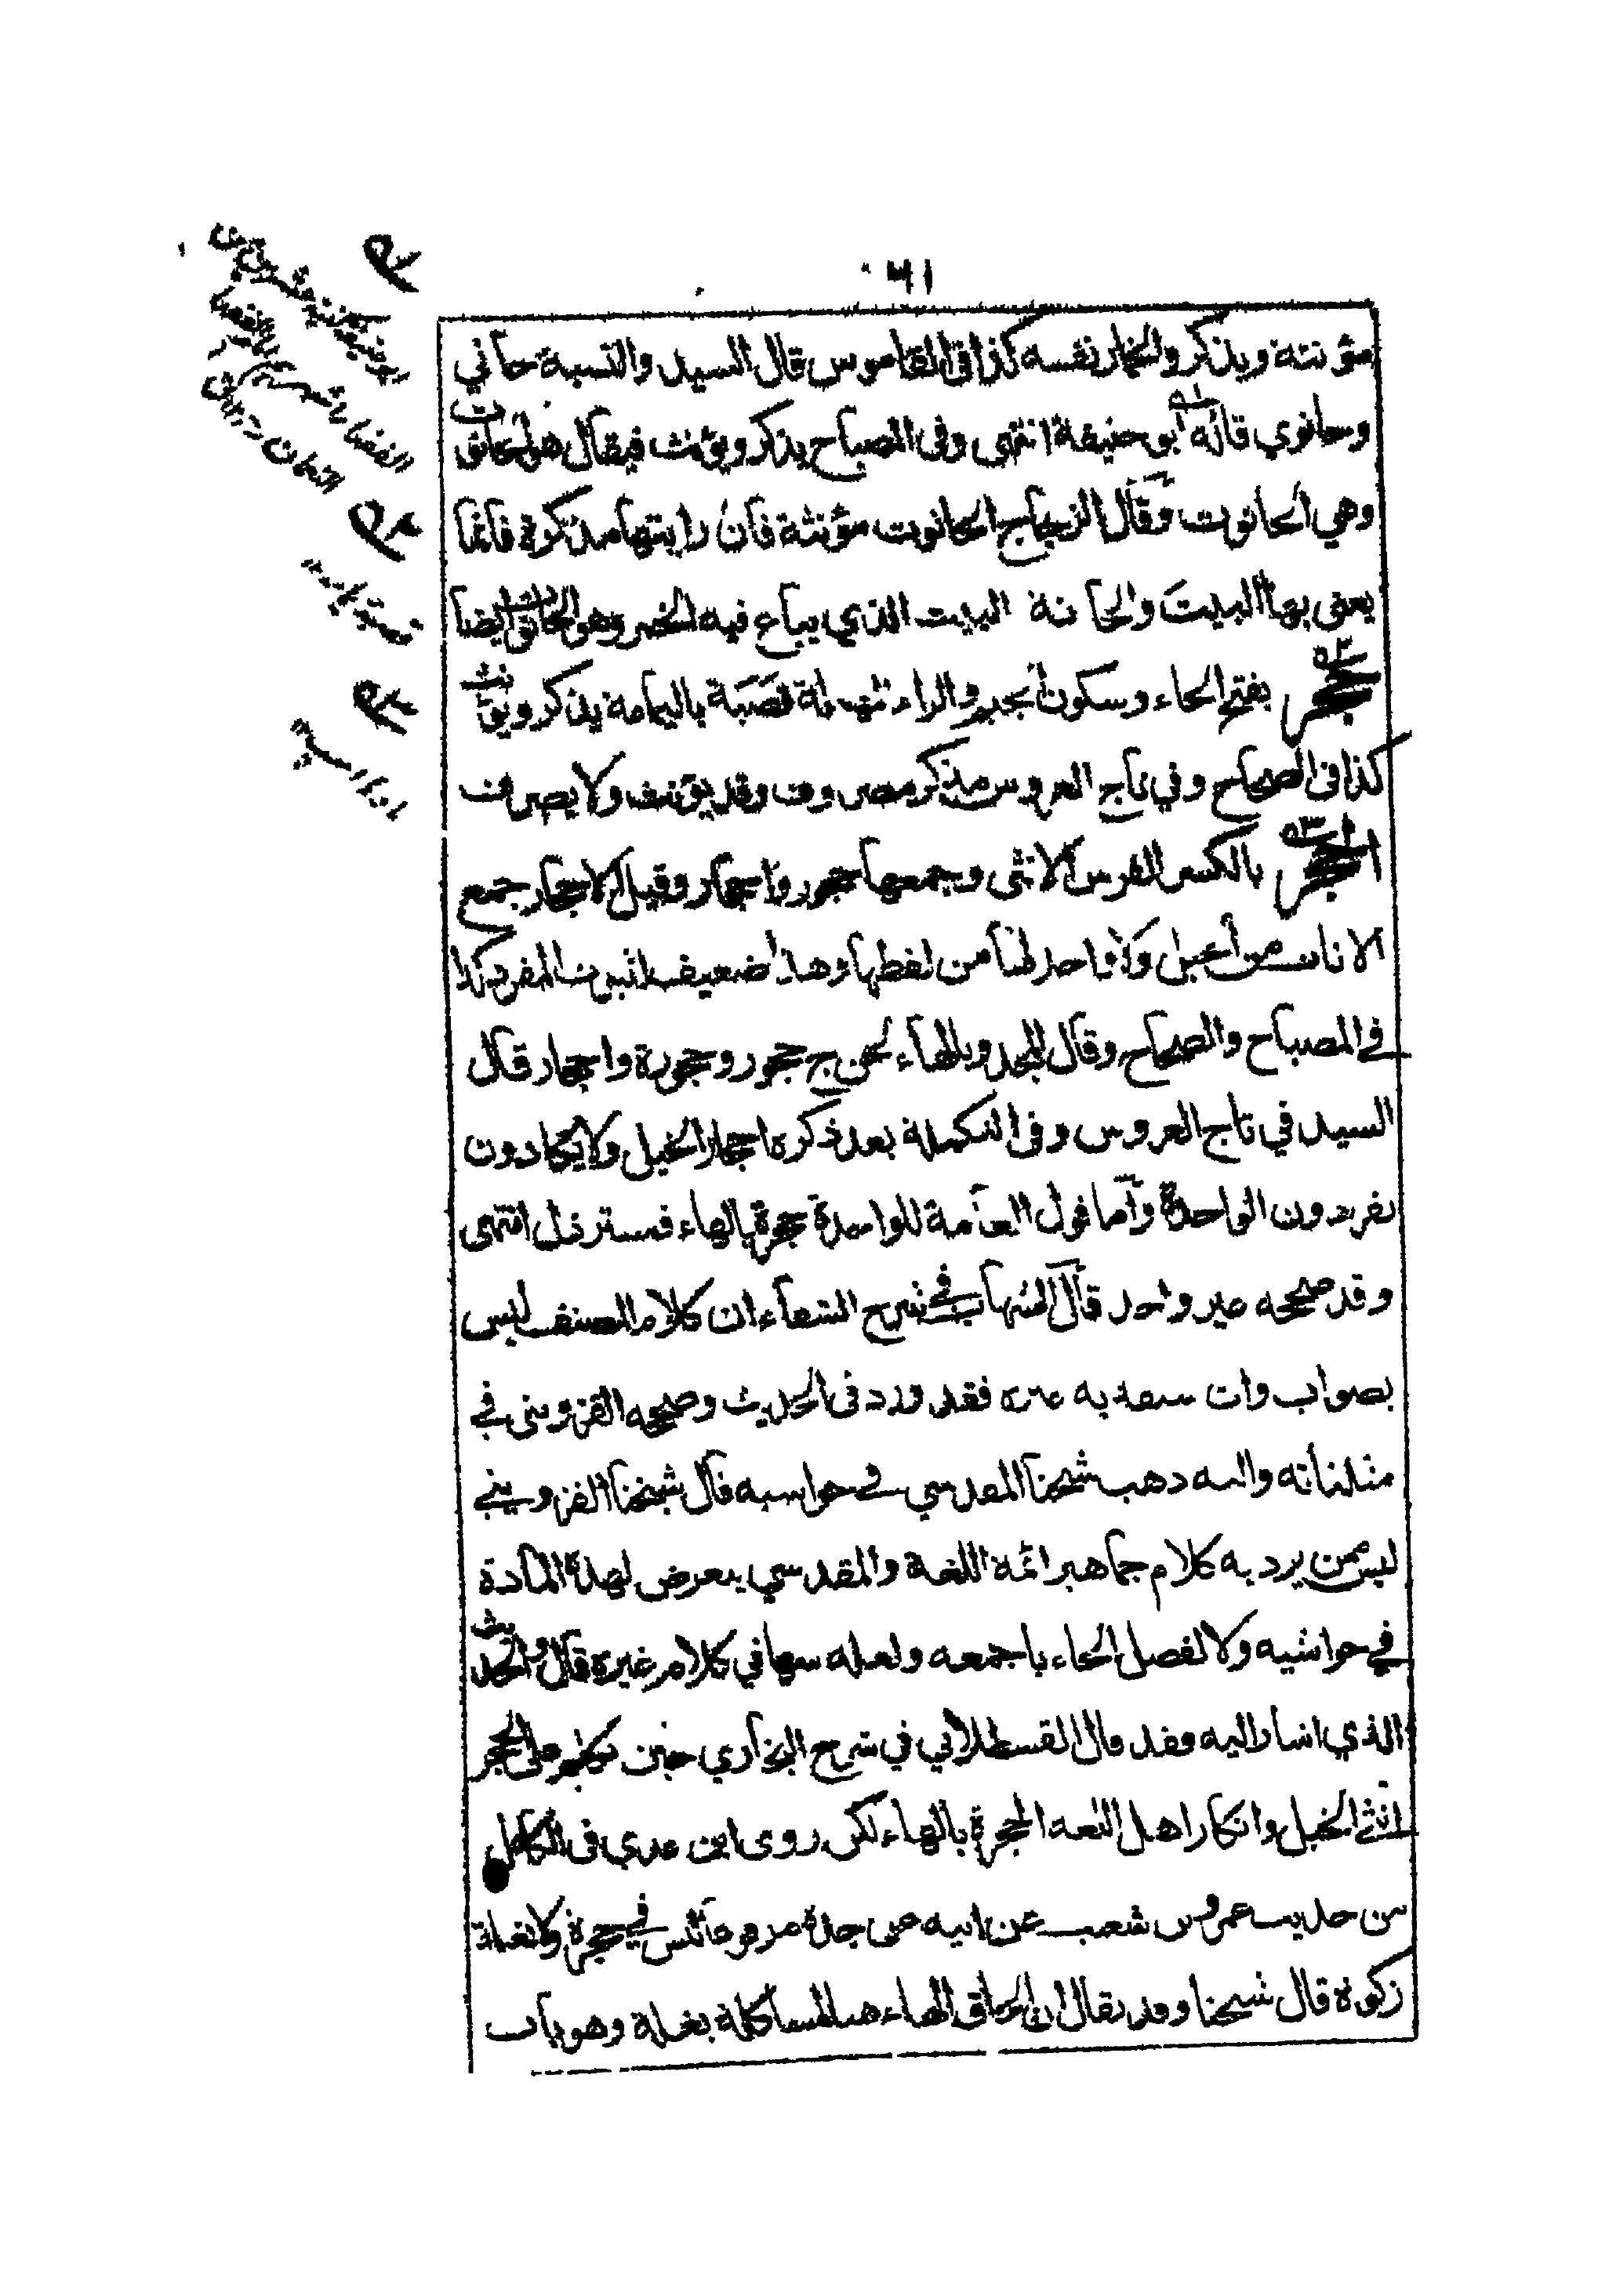 ٦١
مؤنثة ويذكر والخمار نفسه كذا في القاموس قال السيد والنسبة حاني
وحانوي قاله أبو حنيفة انتهى وفي المصباح يذكر ويؤنث فيقال هو الحانوت
وهي الحانوت وقال الزجاج الحانوت مؤنثة فان رايتها مذكرة فانما
يعنى بها البيت والحانة البيت الذي يباع فيه الخمر وهو الحانوت ايضا
حجر بفتح الحاء وسكون الجيم والراء المهملة قصبة باليمامة يذكر ويؤنث
كذا في الصحاح وفي تاج العروس مذكر مصروف وقد يؤنث ولا يصرف
الحجر بالكسر الفرس الانثى وجمعها حجور واحجار وقيل الاحجار جمع
الاناث من الخيل ولا واحد لها من لفظها وهذا ضعيف لثبوت المفرد كذا
في المصباح والصحاح وقال المجد وبالهاء لحن ج حجور وحجورة واحجار قال
السيد في تاج العروس وفي التكملة بعد ذكره احجار الخيل ولا يكادون
يفردون الواحدة وأما قول العامة للواحدة حجرة بالهاء فمسترذل انتهى
وقد صححه غير واحد قال الشهاب في شرح الشفاء ان كلام المصنف ليس
بصواب وان سبقه به غيره فقد ورد في الحديث وصححه القزويني في
مثلثاته واليه ذهب شيخنا المقدسي في حواشيه قال شيخنا القزويني
ليس ممن يرد به كلام جماهير ائمة اللغة والمقدسي يتعرض لهذه المادة
في حواشيه ولا لفصل الحاء باجمعه ولعله سها في كلام غيره قال والحديث
الذي اشار اليه فقد قال القسطلاني في شرح البخاري حين تكلم على الحجر
انثى الخيل وانكار اهل اللغة الحجرة بالهاء لكن روى ابن عدي في الكامل
من حديث عمرو بن شعيب عن ابيه عن جده مرفوعا ليس في حجرة ولا بغلة
زكوة قال شيخنا وقد يقال ان الحاق الهاء هنا لمشاكلة بغلة وهو باب